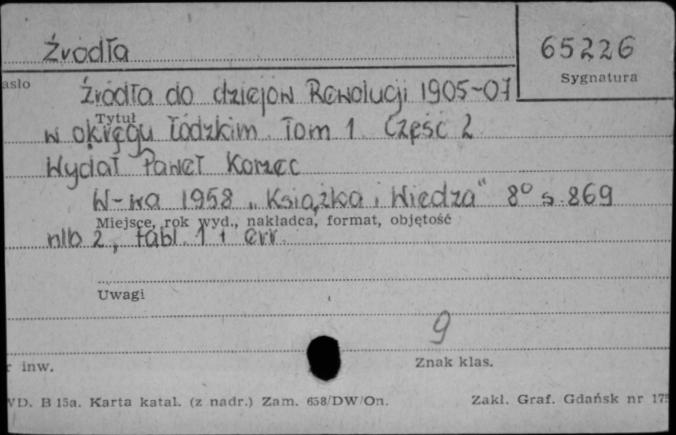 Źródła
65226
asło
Sygnatura
Źródła do dziejów Rewolucji 1905-07
Tytuł
w okręgu łódzkim. Tom 1. Część 2
Wydał Paweł Korzec
W-wa 1958 „Książka i Wiedza" 8° s. 869
Miejsce, rok wyd., nakładca, format, objętość
nlb 2, tabl. 1 + err.
Uwagi
9
r inw.
Znak klas.
WD. B 15a. Karta katal. (z nadr.) Zam. 658/DW/On.
Zakł. Graf. Gdańsk nr 175